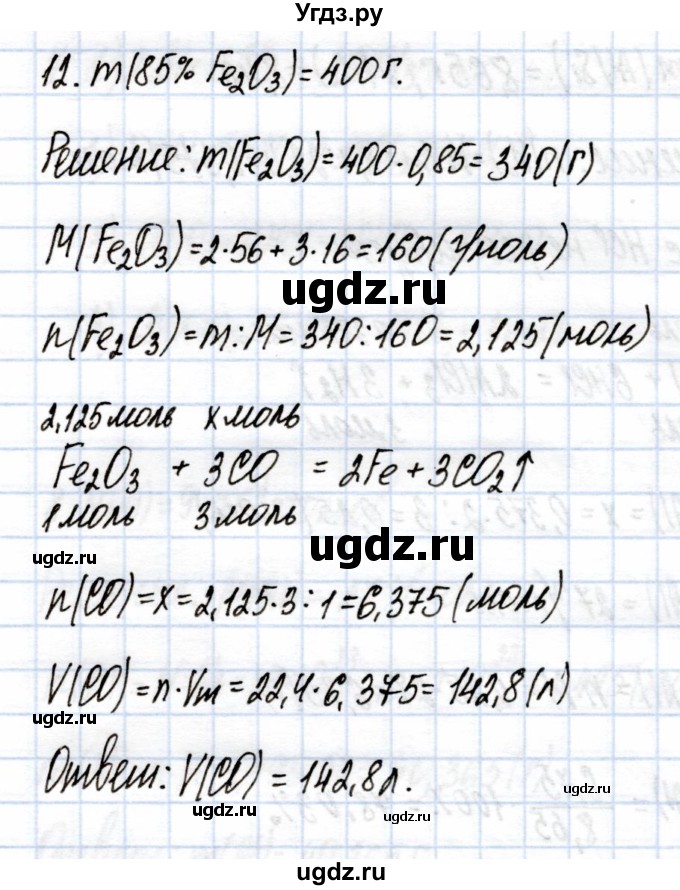 Угдз.ру
12. m(85% Fe₂O₃)=400г.
Решение: m(Fe₂O₃)=400·0,85=340(г)
M(Fe₂O₃)=2·56+3·16=160(г/моль)
ugdz.ru
n(Fe₂O₃)=m:M=340:160=2,125(моль)
2,125моль х моль
Fe₂O₃ + 3CO = 2Fe+3CO₂↑
1моль 3 моль
ugdz.ru
ugdz.ru
n(CO)=x=2,125·3:1=6,375(моль)
V(CO)=n·Vm=22,4·6,375=142,8(л)
ugdz.ru
Ответ: V(CO)=142,8л.
ugdz.ru
ugdz.ru